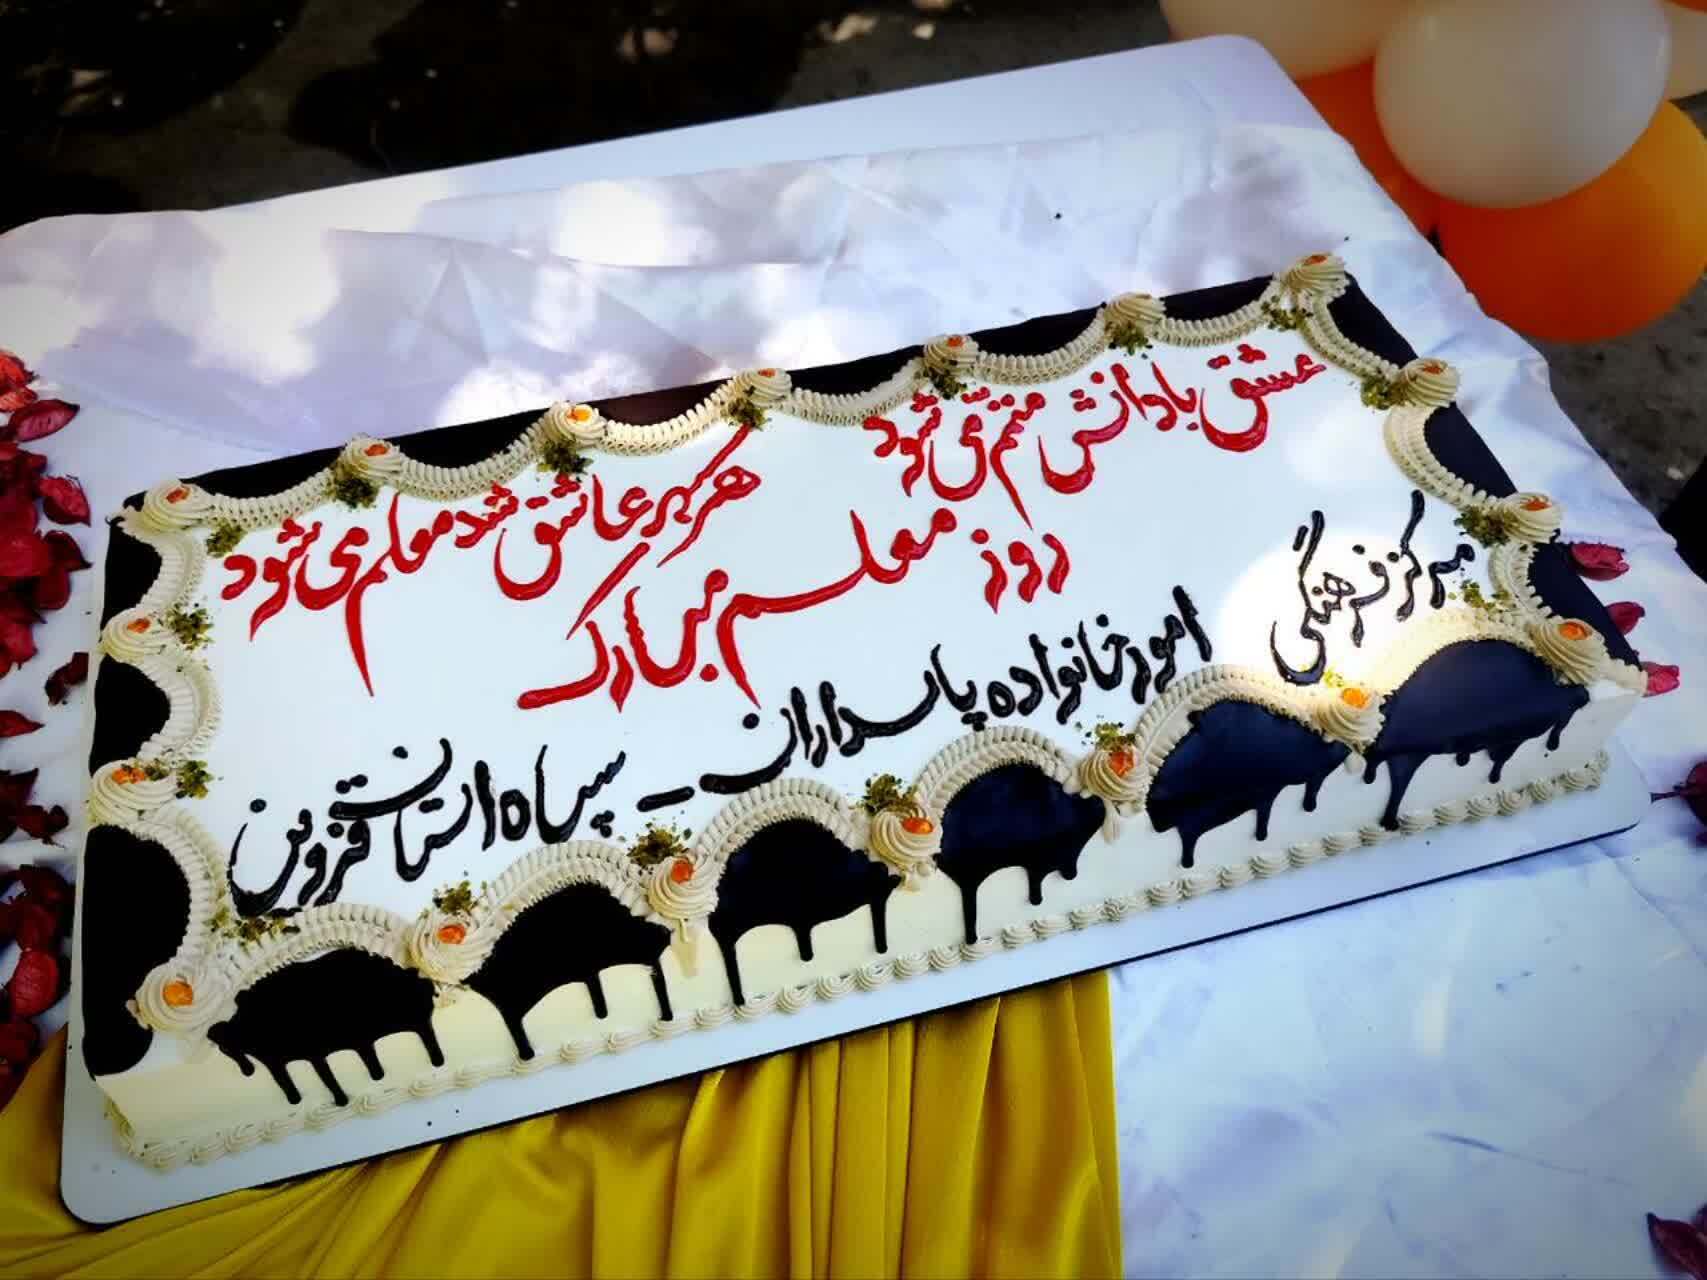 عشق با دانش متمم می شود
هر که بر عاشق شد معلم می شود
روز معلم مبارک
مرکز فرهنگی
امور خانواده پاسداران - سپاه استان قزوین